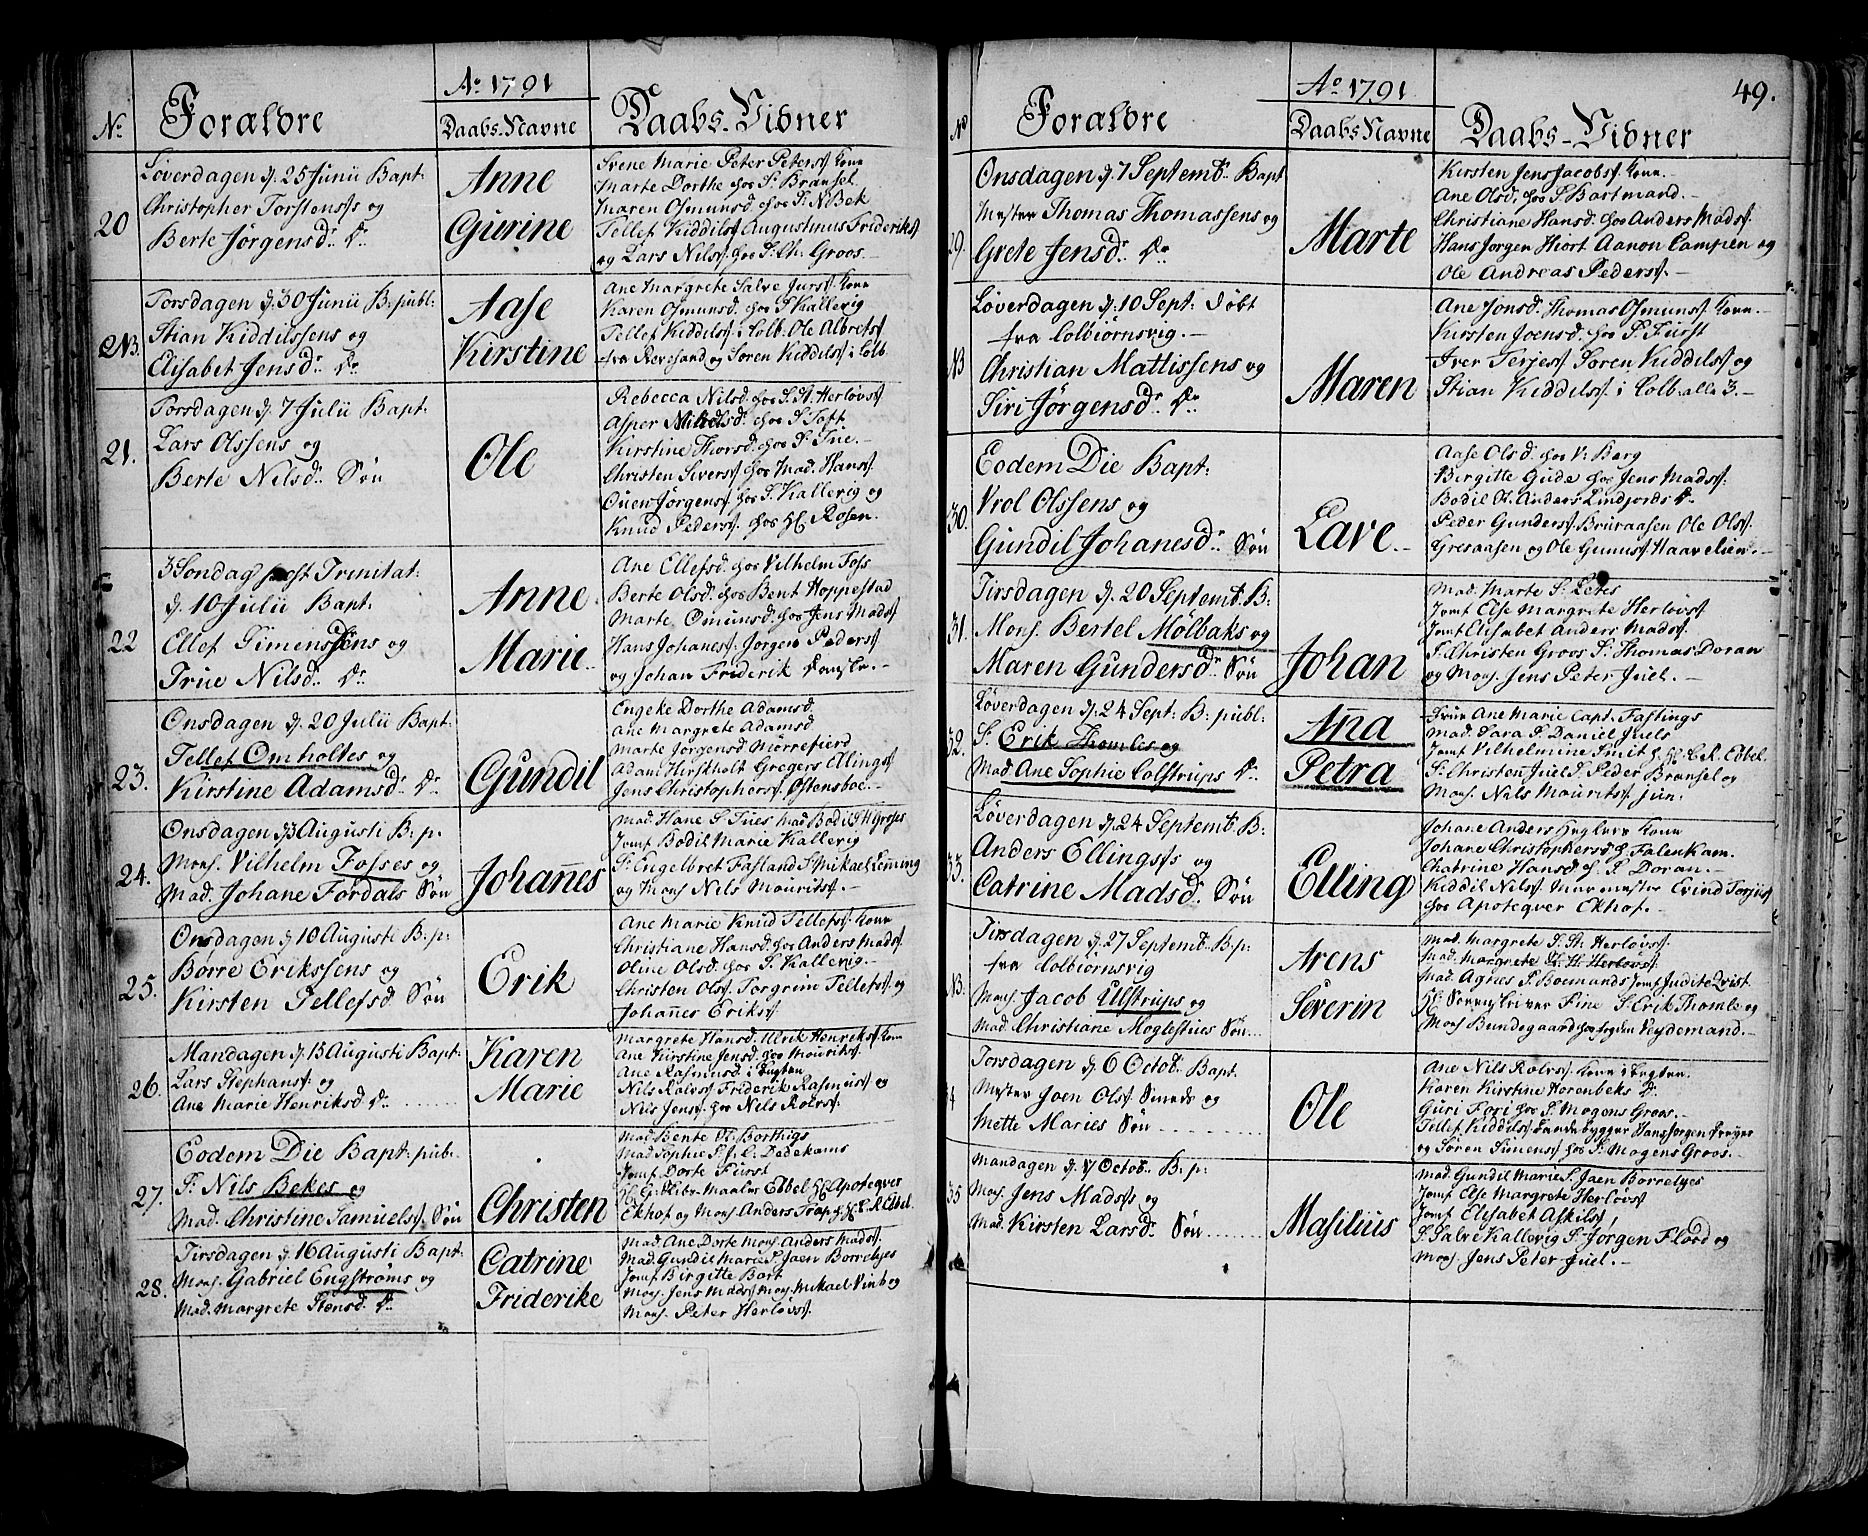 Aº 1791
No
Forældre
Daabs-Navne
Daabs-Vidner
20
Løverdagen d. 25 Junii Bapt:
Christopher Torstenss og
Berte Jörgensd. Dr
Anne
Gurine
Svene Marie Peter Peterss Kone
Marte Dorthe hos S. Bransel
Maren Osmunsd hos S. N Bek
Tellef Kiddilss Augustinus Frideriks
og Lars Nilss. hos S. Ch. Groos.-
NB.
Torsdagen d. 30 Junii B: publ:
Stian Kiddilssens og
Elisabet Jensd. Dr
Aase
Kirstine
Ane Margrete Salve Jurss. Kone
Karen Osmunsd hos S Kallevig
Tellef Kiddilss i Colb. Ole Albretss
fra Revesand og Søren Kiddilss i Colb.
21.
Torsdagen d. 7 Julii Bapt:
Lars Olssens og
Berte Nilsd. Søn
Ole
Rebecca Nilsd. hos S. St. Herlovss
Asper hos S Toft.
Kirstine Thorsd. hos S. Tue.-
Christen Sivers hos Mad. Hanss.
Ouen Jørgenss. hos S. Kallevig og
Knud Pederss. hos H. Rosen.
22
3 Søndag post Trinitat:
d. 10 Julii Bapt:
Ellef Simensens og
True Nilsd. Dr
Anne
Marie
Ane Ellefsd. hos Vilhelm Foss
Berte Olsd. hos Bent Hoppestad
Marte Omunsd. hos Jens Madss
Hans Johaness. Jørgen Pederss
og Johan Friderik
23.
Onsdagen d. 20 Julii Bapt:
Tellef Omholtes og
Kirstine Adamsd. Dr
Gundil
Engeke Dorthe Adamsd
Ane Margrete Adamsd
Marte Jørgensd Mørrefierd
Adam Hirskholt Gregers Ellingss
Jens Christopherss. Østensboe.-
24.
Onsdagen d. 3 Augusti B: p:
Mons. Vilhelm Fosses og
Mad. Johane Fordals Søn
Johannes
Mad. Hane S Tues Mad Bodil H Groses
Jomf Bodil Marie Kallevig
S. Engelbret Fasland S. Mikael Lemming
og Mons Nils Mouritss.-
25.
Onsdagen d. 10 Augusti B: p:
Børre Erikssens og
Kirsten Tellefsd Søn
Erik
Ane Marie Knud Tellefss. Kone
Christiane Hansd. hos Anders Madss
Oline Olsd. hos S. Kallevig.-
Christen Olss. Torgrim Tellefss. og
Johannes Erikss
26.
Mandagen d. 15 Augusti Bapt:
Lars Stephanss. og
Ane Marie Henriksd Dr
Karen
Marie
Margrete Hansd. Ulrik Henrikss. Kone
Ane Kirstine Jensd. hos Mouritss.
Ane Rasmusd i Engten
Nils Rolvss Friderik Rasmuss og
Nils Jenss. hos Nils Rolvss.
27.
Eodem Die Bapt: pub:
S. Nils Bekes og
Mad. Christine Samuelss. Søn
Christen
Mad Bente Ol. Borthigs
Mad Sophie S. f. C. Dedekams
Jomf. Dorte Fürst
Maaler Edbel H. Apoteqver
Ekhof og Mons Anders Trap H. C. R. Edbel.
28.
Tirsdagen d. 16 Augusti Bapt:
Mons. Gabriel Engstrøms og
Mad. Margrete Stensd. Dr
Catrine
Friderike
Mad. Ane Dorte Mons. Anders Madss.
Mad. Gundil Marie S. Jaen Borrebyes
Jomf. Birgitte Bart
Mons. Jens Madss Mons. Mikael Vinb og
Mons. Peter Herlovss.
Aº 1791
49.
No
Forældre
Daabs Navne
Daabs-Vidner
29.
Onsdagen d. 7 Septembr. Bapt
Mester Thomas Thomassens og
Grete Jensd. Dr
Marte
Kirsten Jens Jacobss. Kone.-
Ane Olsd. hos S Bartmand.-
Christiane Hansd. hos Anders Madss.
Hans Jorgen Hiort Aanon Campien og
Ole Andreas Pederss.-
NB
Løverdagen d. 10 Sept: døbt
fra Colbiørnsvig.-
Christian Mattissens og
Siri Jörgensd. Dr.
Maren
Ane Jonsd. Thomas Osmunss. Kone.-
Kirsten Joensd. hos S. Fürst
Iver Terjess. Søren Kiddilss og
Stian Kiddilss. i Colb. alle 3.-
30.
Eodem Die Bapt:
Vrol Olssens og
Gundil Johanesd. Søn
Lave.-
Aase Olsd. hos V. Berg
Birgitte Gude hos Jens Madss.
Bodil Ol. Anders Lindjords Dr.
Peder Gunderss. Bruraasen Ole Olss.
Gresaasen og Ole Gunuss Haavelien.-
31.
Tirsdagen d. 20 Septembr. B:
Mons. Bertel Mölbaks og
Maren Gundersd. Søn
Johan
Mad. Marte S. Letes
Jomf Else Margrete Herlovss
Jomf. Elisabet Anders Madss.
S. Christen Groos S. Thomas Doran
og Mons. Jens Peter Juel.-
32.
Løverdagen d. 24 Sept: B: publ:
S. Erik Thomles og
Mad. Ane Sophie Colstrups Dr.
Anna
Petra
Frue Ane Marie Capt. Fastings
Mad. Sara S. Daniel Juels
Jomf Vilhelmine Smit H. H. C. R. Edbel.
S. Christen Juel S. Peder Bransel og
Mons. Nils Mouritss. jun.
33.
Løverdagen d. 24 Septembr. B:
Anders Ellingss og
Catrine Madsd. Søn
Elling
Johane Anders Kone
Johane Christophersd S. Falenkam.
Chatrine Hansd H. S. Doran.-
Kiddil Nilss. Murmester Evind Torjuss
hos Apoteqver Ekhof.-
NB.
Tirsdagen d. 27 Septembr. B: p:
fra Colbiørnsvig
Mons. Jacob Ulstrups og
Mad. Christiane Moglestues Søn...
Arens
Severin
Mad. Margrete S. St. Herlovss.
Mad. Margrete H. Herlovss
Mad. Agnes S. Boemands Jomf Judite Qvist.
H. Sorenskriver Fine S. Erik Thomle og
Mons Bundegaard hos Veydemand.-
34
Torsdagen d. 6 Octobr. Bapt.
Mester Joen Olss Smeds og
Mette Maries Søn
Ole
Ane Nils Rolvss. Kone i Engten.
Karen Kirstine Horenbeks Dr.
Guri Fori hos S. Mogens Groos.-
Tellef Kiddilss Hans Jørgen Dreyer
og Søren Simenss hos S. Mogens Groos.-
35
Mandagen d. 17 Octobr. B: p:
Mons. Jens Madss og
Mad. Kirsten Larsd. Søn
Masilius
Mad. Gundil Marie S. Jaen Borrebyes
Jomf. Else Margrete Herlovss
Jomf. Elisabet Askilss,
S. Salve Kallevig S. Jörgen Flood og
Mons. Jens Peter Juel.-